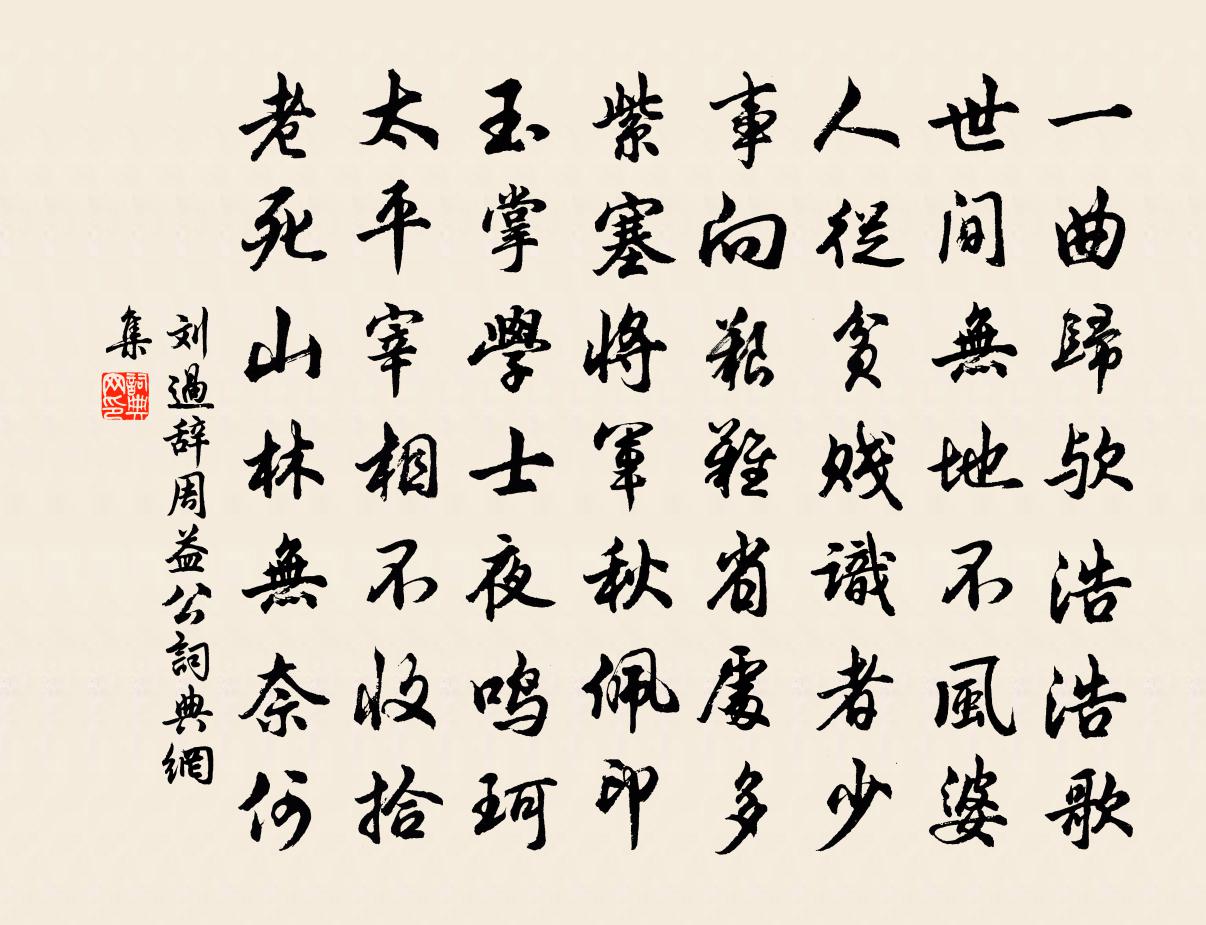 一曲歸歟浩浩歌
世間無地不風婆
人從貧賤識者少
事向艱難省處多
紫塞將軍秋佩印
玉掌學士夜鳴珂
太平宰相不收拾
老死山林無奈何
刘過辞周益公詞典網
集
詞典网印